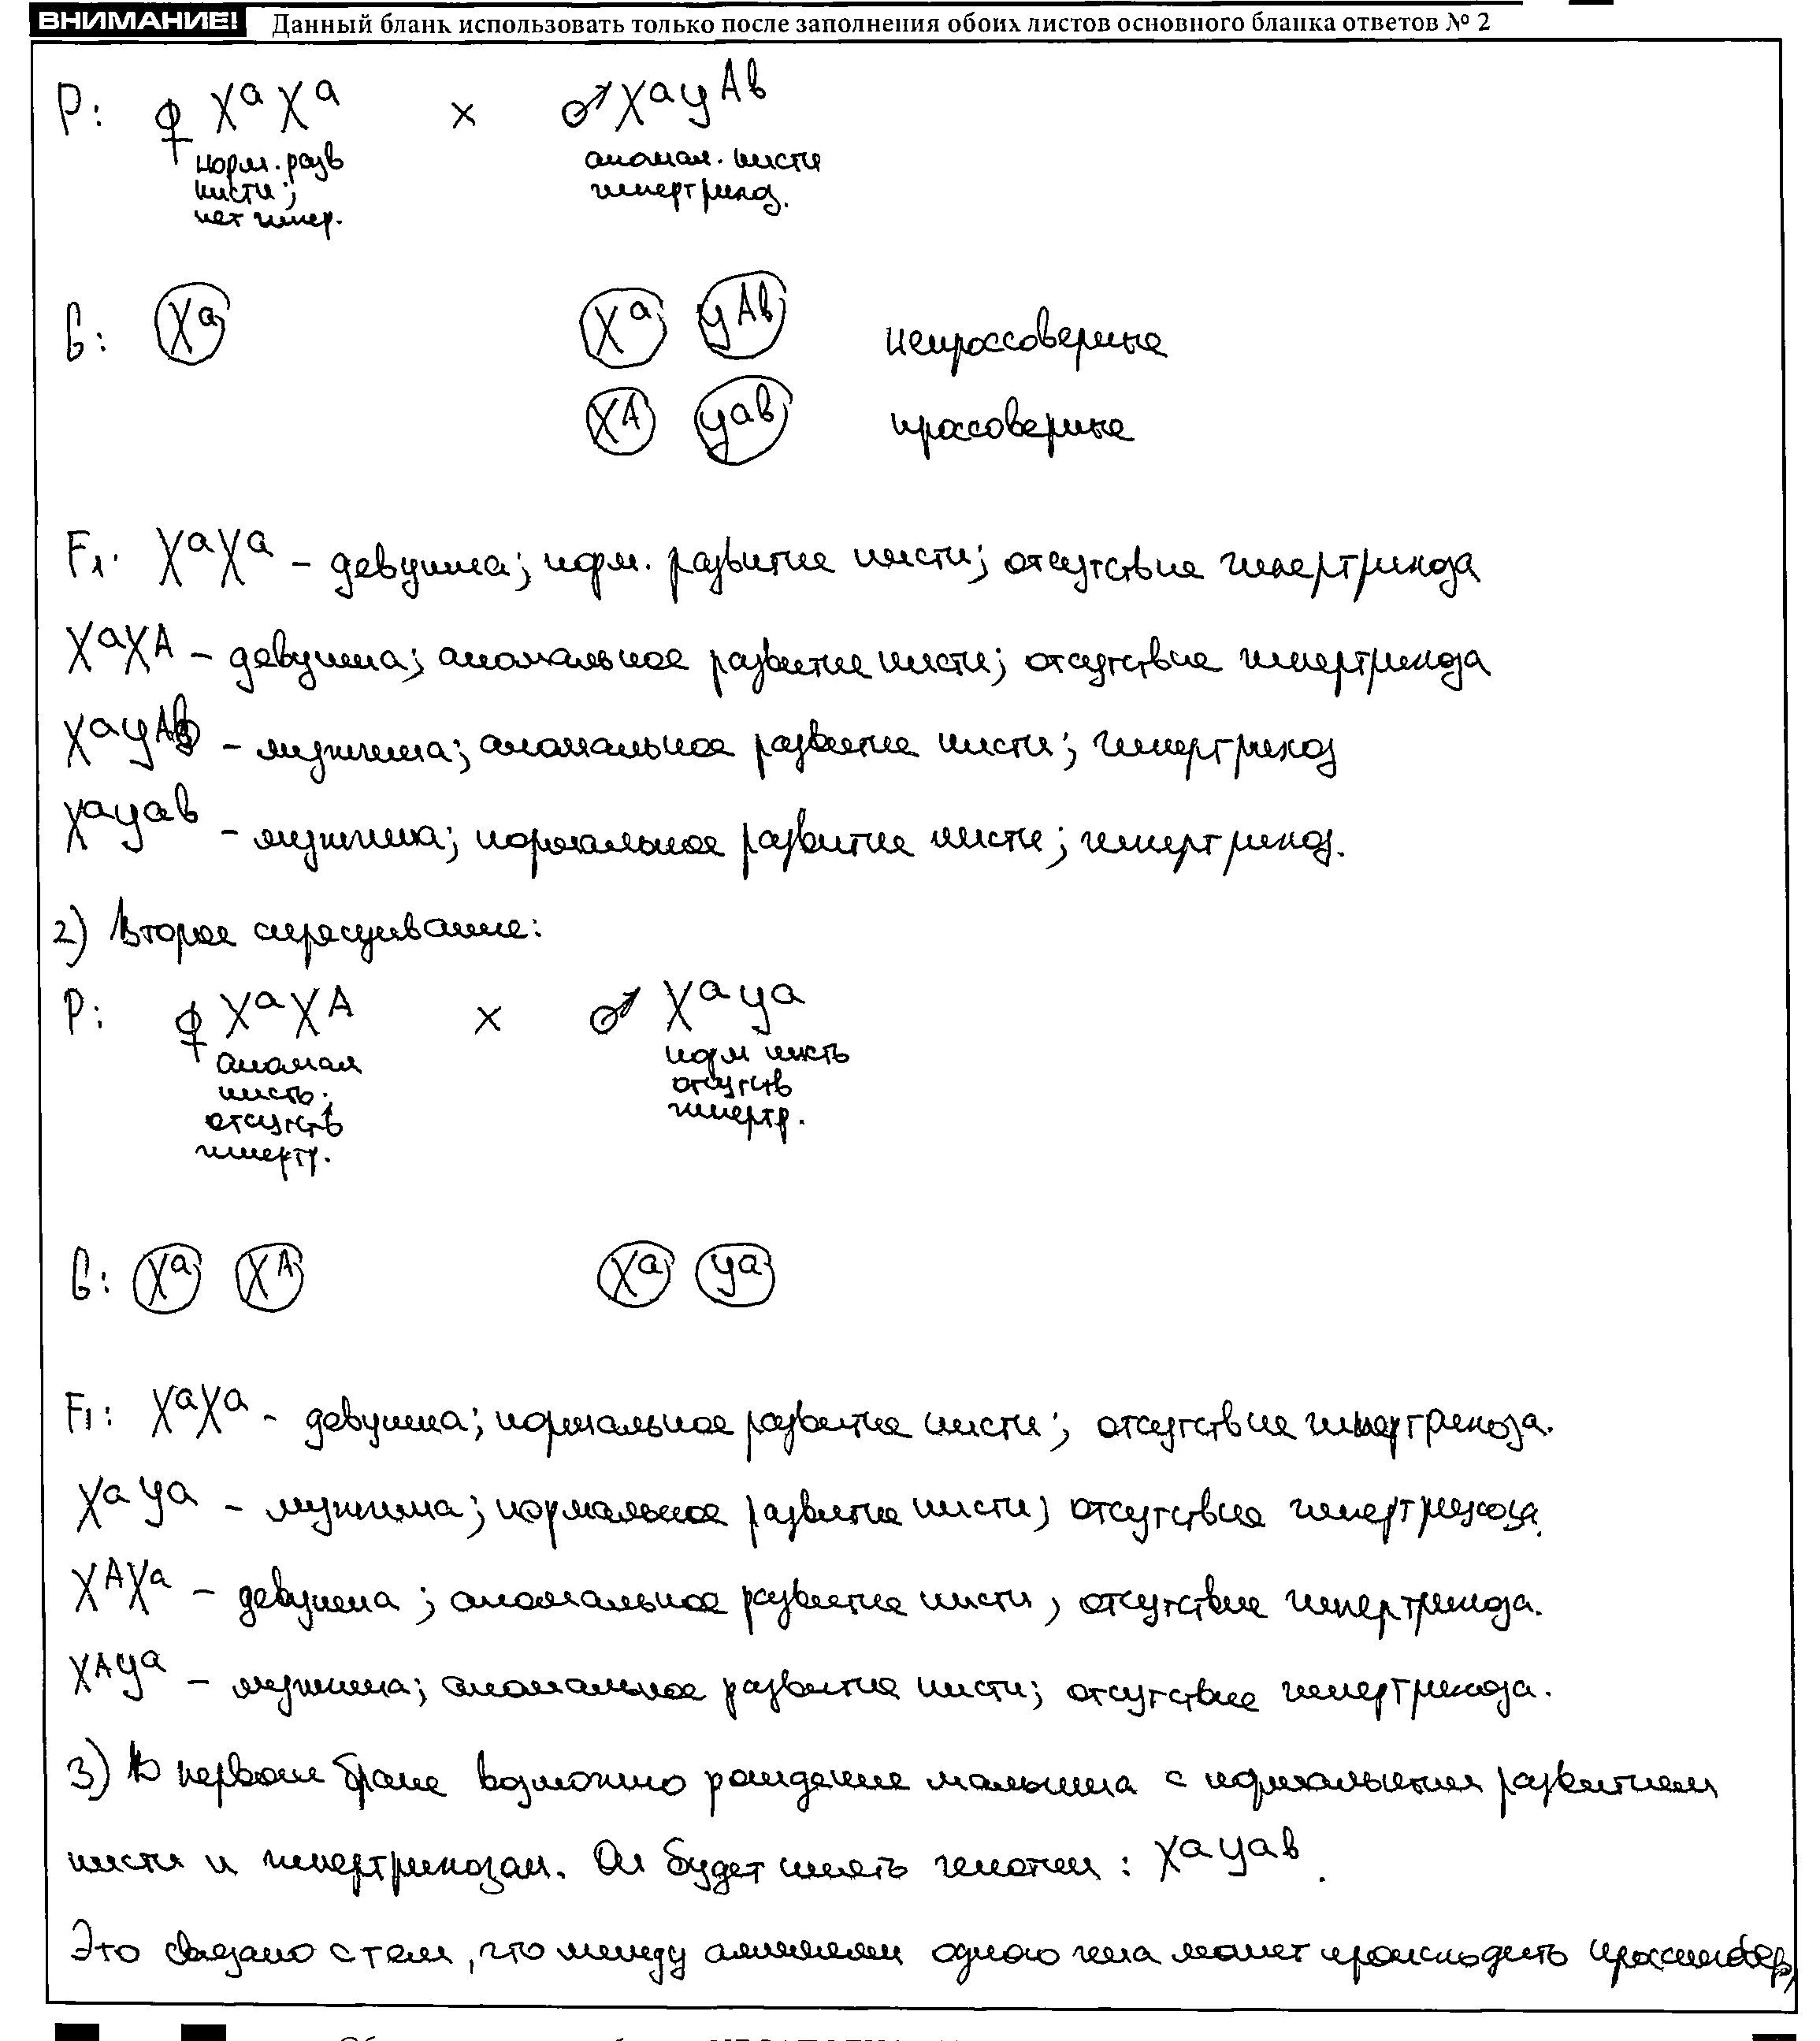 ВНИМАНИЕ! Данный бланк использовать только после заполнения обоих листов основного бланка ответов № 2
P: ♀ XᵃXᵃ × ♂ XᵃYᴬᵇ
норм. разв аномал. кисти
кисти; гипертрихоз.
нет гипер.
G: Xᵃ Xᵃ Yᴬᵇ некроссоверные
Xᴬ Yᵃᵇ кроссоверные
F₁: XᵃXᵃ – девушка; норм. развитие кисти; отсутствие гипертрихоза
XᵃXᴬ – девушка; аномальное развитие кисти; отсутствие гипертрихоза
XᵃYᴬᵇ – мужчина; аномальное развитие кисти; гипертрихоз
XᵃYᵃᵇ – мужчина; нормальное развитие кисти; гипертрихоз.
2) Второе скрещивание:
P: ♀ XᵃXᴬ × ♂ XᵃYᵃ
аномал норм кисть
кисть; отсутств
отсутств гипертр.
гипертр.
G: Xᵃ Xᴬ Xᵃ Yᵃ
F₁: XᵃXᵃ - девушка; нормальное развитие кисти; отсутствие гипертрихоза.
XᵃYᵃ – мужчина; нормальное развитие кисти; отсутствие гипертрихоза.
XᴬXᵃ – девушка; аномальное развитие кисти, отсутствие гипертрихоза.
XᴬYᵃ – мужчина; аномальное развитие кисти; отсутствие гипертрихоза.
3) В первом браке возможно рождение малыша с нормальным развитием
кисти и гипертрихозом. Он будет иметь генотип: XᵃYᵃᵇ.
Это связано с тем, что между аллелями одного гена может происходить кроссинговер,